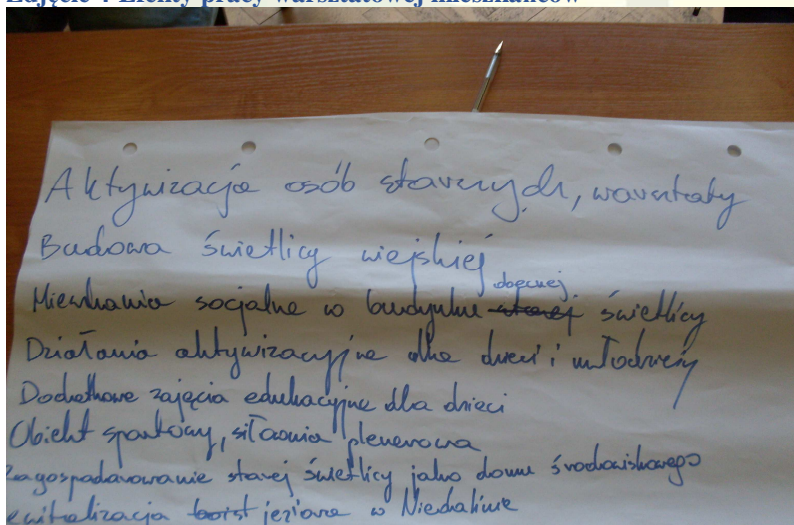 Zdjęcie 7 Efekty pracy warsztatowej mieszkańców
Aktywizacja osób starszych, warsztaty
Budowa świetlicy wiejskiej
Mieszkania socjalne w budynku starej obecnej świetlicy
Działania aktywizacyjne dla dzieci i młodzieży
Dodatkowe zajęcia edukacyjne dla dzieci
Obiekt sportowy, siłownia plenerowa
Zagospodarowanie starej świetlicy jako domu środowiskowego
ewitalizacja jeziora w Niedalinie